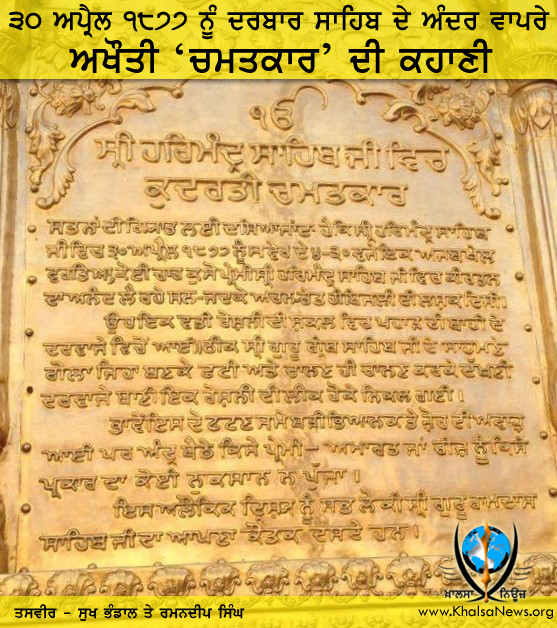 ੩੦ ਅਪ੍ਰੈਲ ੧੮੭੭ ਨੂੰ ਦਰਬਾਰ ਸਾਹਿਬ ਦੇ ਅੰਦਰ ਵਾਪਰੇ
ਅਖੌਤੀ ‘ਚਮਤਕਾਰ’ ਦੀ ਕਹਾਣੀ
ੴ
ਸ੍ਰੀ ਹਰਿਮੰਦ੍ਰ ਸਾਹਿਬ ਜੀ ਵਿਚ
ਕੁਦਰਤੀ ਚਮਤਕਾਰ
ਸਤਨਾਂ ਦੀ ਗਿਆਤ ਲਈ ਦਸਿਆ ਜਾਂਦਾ ਹੈ ਕਿ ਸ੍ਰੀ ਹਰਿਮੰਦ੍ਰ ਸਾਹਿਬ
ਜੀ ਵਿਚ ੩੦ ਅਪ੍ਰੈਲ ੧੮੭੭ ਨੂੰ ਸਵੇਰ ਦੇ ੪-੩੦ ਵਜੇ ਇਕ ਅਜਬ ਖੇਲ
ਵਰਤਿਆ, ਕੋਈ ਚਾਰ ਕੁ ਸੌ ਪ੍ਰੇਮੀ ਸ੍ਰੀ ਹਰਿਮੰਦ੍ਰ ਸਾਹਿਬ ਜੀ ਵਿਚ ਕੀਰਤਨ
ਦਾ ਅਨੰਦ ਲੈ ਰਹੇ ਸਨ-ਜਦਕੇ ਅਚਨ-ਚੇਤ ਹੀ ਬਿਜਲੀ ਦੀ ਲਸ਼ਕ ਦਿਸੀ।
ਉਹ ਇਕ ਵਡੀ ਰੋਸ਼ਨੀ ਦੀ ਸ਼ਕਲ ਵਿਚ ਪਹਾੜ ਦੀ ਬਾਹੀ ਦੇ
ਦਰਵਾਜੇ ਵਿਚੋਂ ਆਈ।ਠੀਕ ਸ੍ਰੀ ਗੁਰੂ ਗ੍ਰੰਥ ਸਾਹਿਬ ਜੀ ਦੇ ਸਾਹਮਣੇ
ਗੋਲਾ ਜਿਹਾ ਬਣਕੇ ਫਟੀ ਅਤੇ ਚਾਨਣ ਹੀ ਚਾਨਣ ਕਰਕੇ ਦੱਖਣੀ
ਦਰਵਾਜੇ ਥਾਣੀ ਇਕ ਰੋਸ਼ਨੀ ਦੀ ਲੀਕ ਹੋਕੇ ਨਿਕਲ ਗਈ।
ਭਾਵੇਂ ਇਸ ਦੇ ਫਟਣ ਸਮੇ ਬੜੀ ਭਿਆਨਕ ਤੇ ਸ਼ੋਰ ਦੀ ਅਵਾਜ਼
ਆਈ ਪਰ ਅੰਦ੍ਰ ਬੈਠੇ ਕਿਸੇ ਪ੍ਰੇਮੀ- ਅਮਾਰਤ ਜਾਂ ਚੀਜ਼ ਨੂੰ ਕਿਸੇ
ਪ੍ਰਕਾਰ ਦਾ ਕੋਈ ਨੁਕਸਾਨ ਨ ਪੁੱਜਾ।
ਇਸ ਅਲੌਕਿਕ ਦ੍ਰਿਸ਼੍ਯ ਨੂੰ ਸਭ ਲੋਕੀ ਸ੍ਰੀ ਗੁਰੂ ਰਾਮਦਾਸ
ਸਾਹਿਬ ਜੀ ਦਾ ਆਪਣਾ ਕੌਤਕ ਦਸਦੇ ਹਨ।
ਖ਼ਾਲਸਾ ਨਿਊਜ਼
ਤਸਵੀਰ - ਸੁਖ ਭੰਡਾਲ ਤੇ ਰਮਨਦੀਪ ਸਿੰਘ
www.KhalsaNews.org